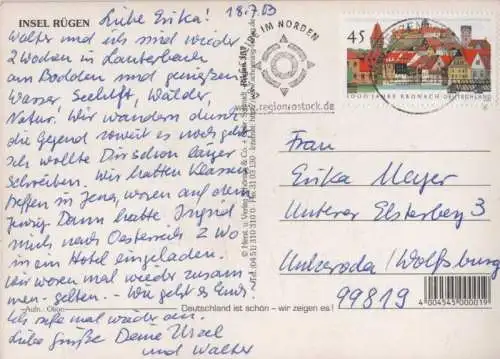 INSEL RÜGEN
18.7.03
Liebe Erika!
Walter und ich sind wieder
2 Wochen in Lauterbach
am Bodden und genießen
Wasser, Seeluft, Wälder,
Natur. Wir wandern durch
die Gegend soweit es noch geht
Ich wollte Dir schon länger
schreiben. Wir hatten Klassen
treffen in Jena, waren auf dem
Jenzig. Dann hatte Ingrid
mich nach Oesterreich 2 Wo
in ein Hotel eingeladen.
Wir waren mal wieder zusam
men. Wie geht es Euch?
Ich rufe mal wieder an.
Liebe Grüße Deine Ursel
und Walter
IM NORDEN
regionrostock.de
45
1000 JAHRE KRONACH
DEUTSCHLAND
Frau
Erika Meyer
Unterer Elsterberg 3
Unkeroda/Wolfsburg
99819
4 004545 000019
Deutschland ist schön – wir zeigen es!